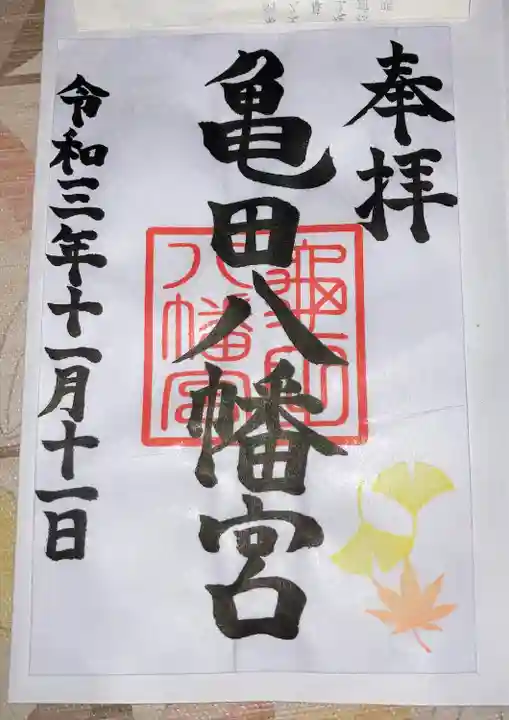 奉拝
亀田八幡宮
龜田
八幡宮
令和三年十一月十一日